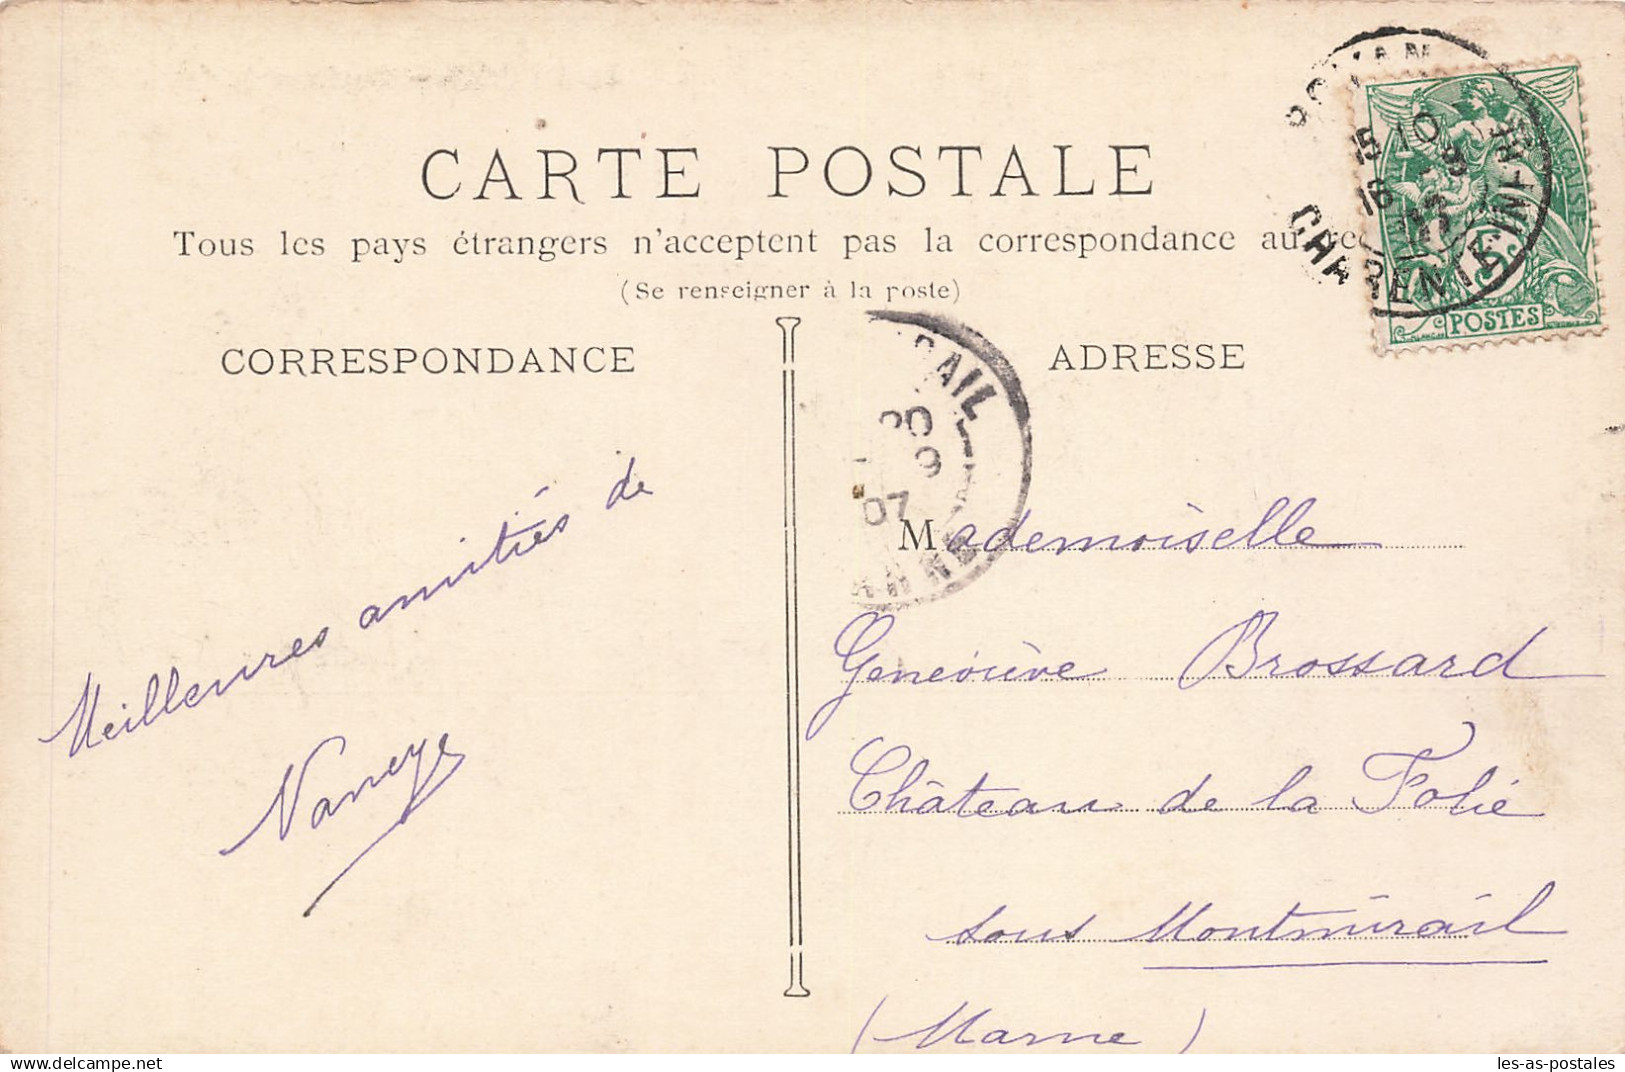 CARTE POSTALE
Tous les pays étrangers n'acceptent pas la correspondance au
(Se renseigner à la poste)
CORRESPONDANCE
ADRESSE
POSTES
CHARENTE INFRE
10
RAIL
20
9
07
Meilleures amitiés de
Mademoiselle
Geneviève Brossard
Château de la Folie
sous Montmirail
(Marne)
www.delcampe.net
les-as-postales